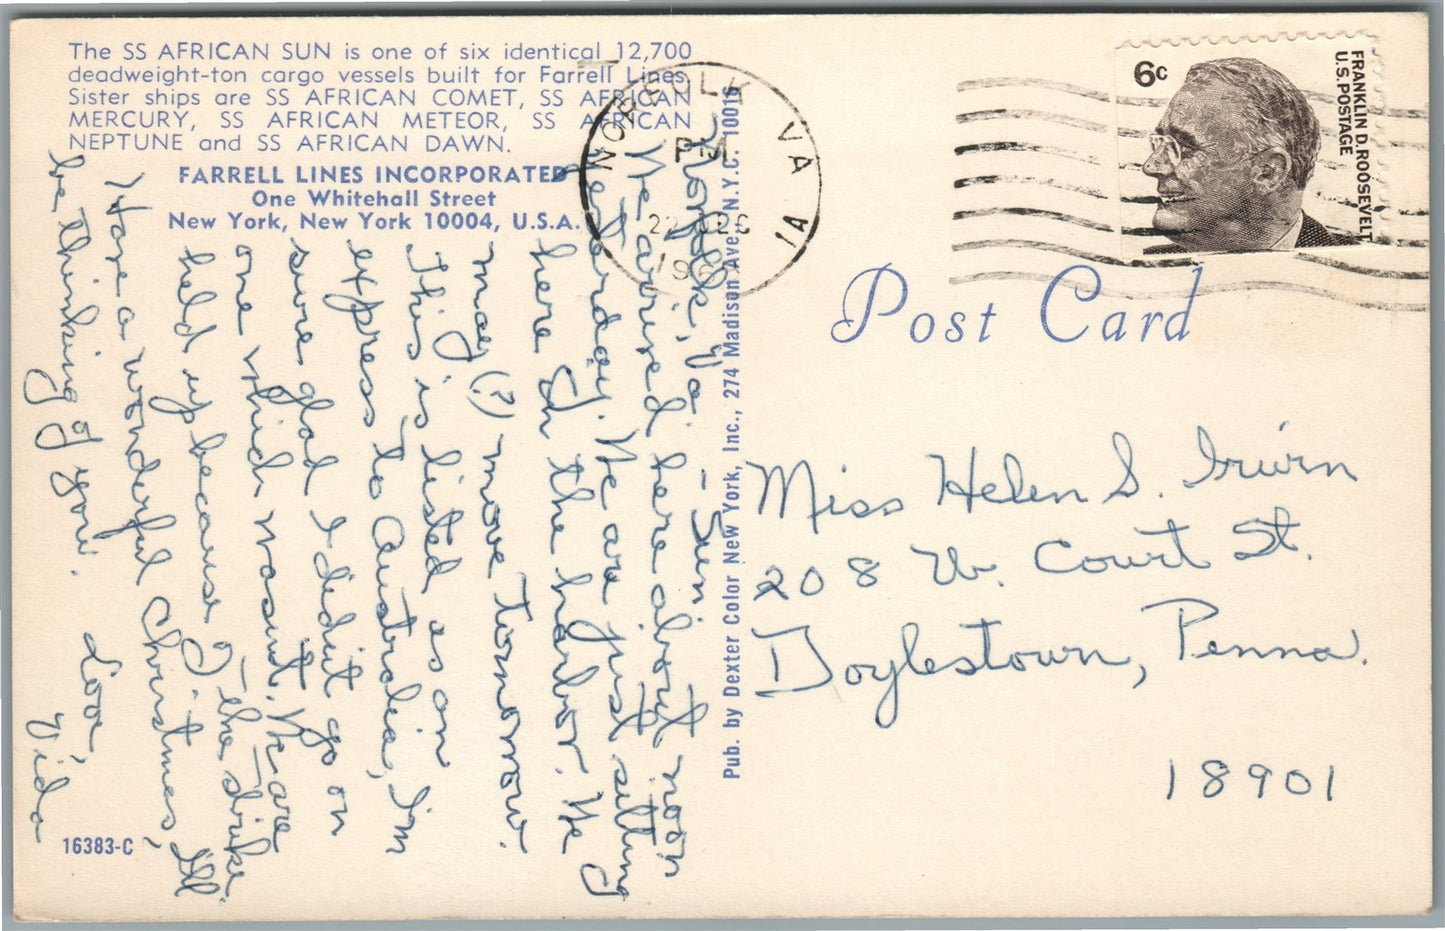 The SS AFRICAN SUN is one of six identical 12,700
deadweight-ton cargo vessels built for Farrell Lines.
Sister ships are SS AFRICAN COMET, SS AFRICAN
MERCURY, SS AFRICAN METEOR, SS AFRICAN
NEPTUNE and SS AFRICAN DAWN.
FARRELL LINES INCORPORATED
One Whitehall Street
New York, New York 10004, U.S.A.
Norfolk, Va. - Sun.
We arrived here about noon
yesterday. We are just sitting
here in the harbor. We
may (?) move tomorrow.
This is listed as an
express to Australia, I'm
sure glad I didn't go on
one which wasn't. We are
held up because of - the strike.
Have a wonderful Christmas, I'll
be thinking of you. Love,
Vida
16383-C
Pub. by Dexter Color New York, Inc., 274 Madison Ave., N.Y.C. 10016
NORFOLK VA
PM
22 DEC
196
1A
6c
FRANKLIN D. ROOSEVELT
U.S. POSTAGE
Post Card
Miss Helen S. Irwin
208 W. Court St.
Doylestown, Penna.
18901